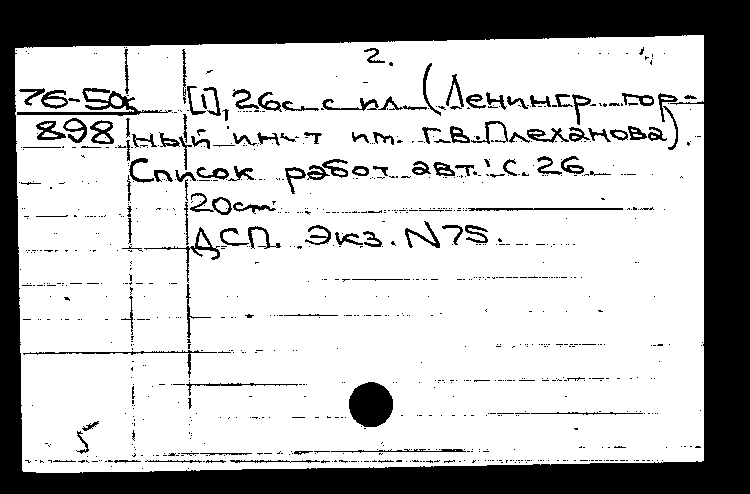 2.
76-50к [1], 26с. с ил. (Ленингр. гор-
898 ный ин-т им. Г.В.Плеханова).
Список работ авт.: с. 26.
20см.
ДСП. Экз. N75.
5